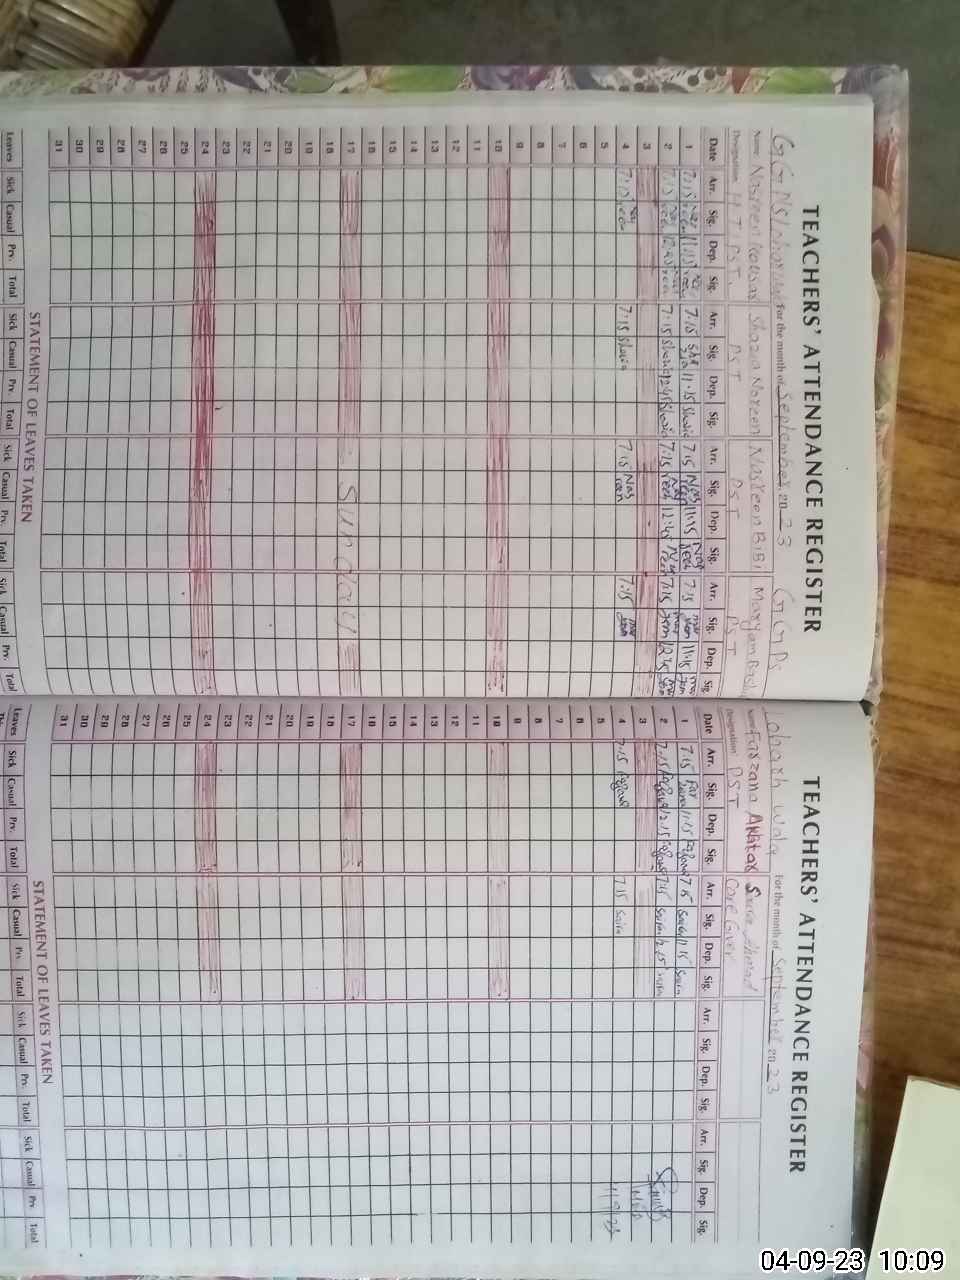 TEACHERS' ATTENDANCE REGISTER
For the month of September 20 23 GGPS
Name Nasreen Kousar Shazia Noreen Nasreen BiBi Maryam Bashir
Designation PST PST PST PST
Date Arr. Sig. Dep. Sig. Arr. Sig. Dep. Sig. Arr. Sig. Dep. Sig. Arr. Sig. Dep. Sig.
1 7:15 11:15 7:15 11:15 7:15 11:15 7:15 11:15
2 7:15 12:45 7:15 12:45 7:15 12:45 7:15 12:45
3
4 7:15 7:15 Shazia 7:15 Nasreen 7:15
5
6
7
8
9
10
11
12
13
14
15
16
17 Sunday
18
19
20
21
22
23
24
25
26
27
28
29
30
31
STATEMENT OF LEAVES TAKEN
Leaves Sick Casual Prv. Total Sick Casual Prv. Total Sick Casual Prv. Total Sick Casual Prv. Total
TEACHERS' ATTENDANCE REGISTER
For the month of September 20 23
Name Farzana Akhtar Saira Ahmad
Designation PST Care Giver
Date Arr. Sig. Dep. Sig. Arr. Sig. Dep. Sig. Arr. Sig. Dep. Sig. Arr. Sig. Dep. Sig.
1 7:15 11:15 7:15 11:15 Saira
2 7:15 12:15 7:15 Saira
3
4 7:15 7:15 Saira
5
6
7
8
9
10
11
12
13
14
15
16
17
18
19
20
21
22
23
24
25
26
27
28
29
30
31
STATEMENT OF LEAVES TAKEN
Leaves Sick Casual Prv. Total Sick Casual Prv. Total Sick Casual Prv. Total Sick Casual Prv. Total
04-09-23 10:09